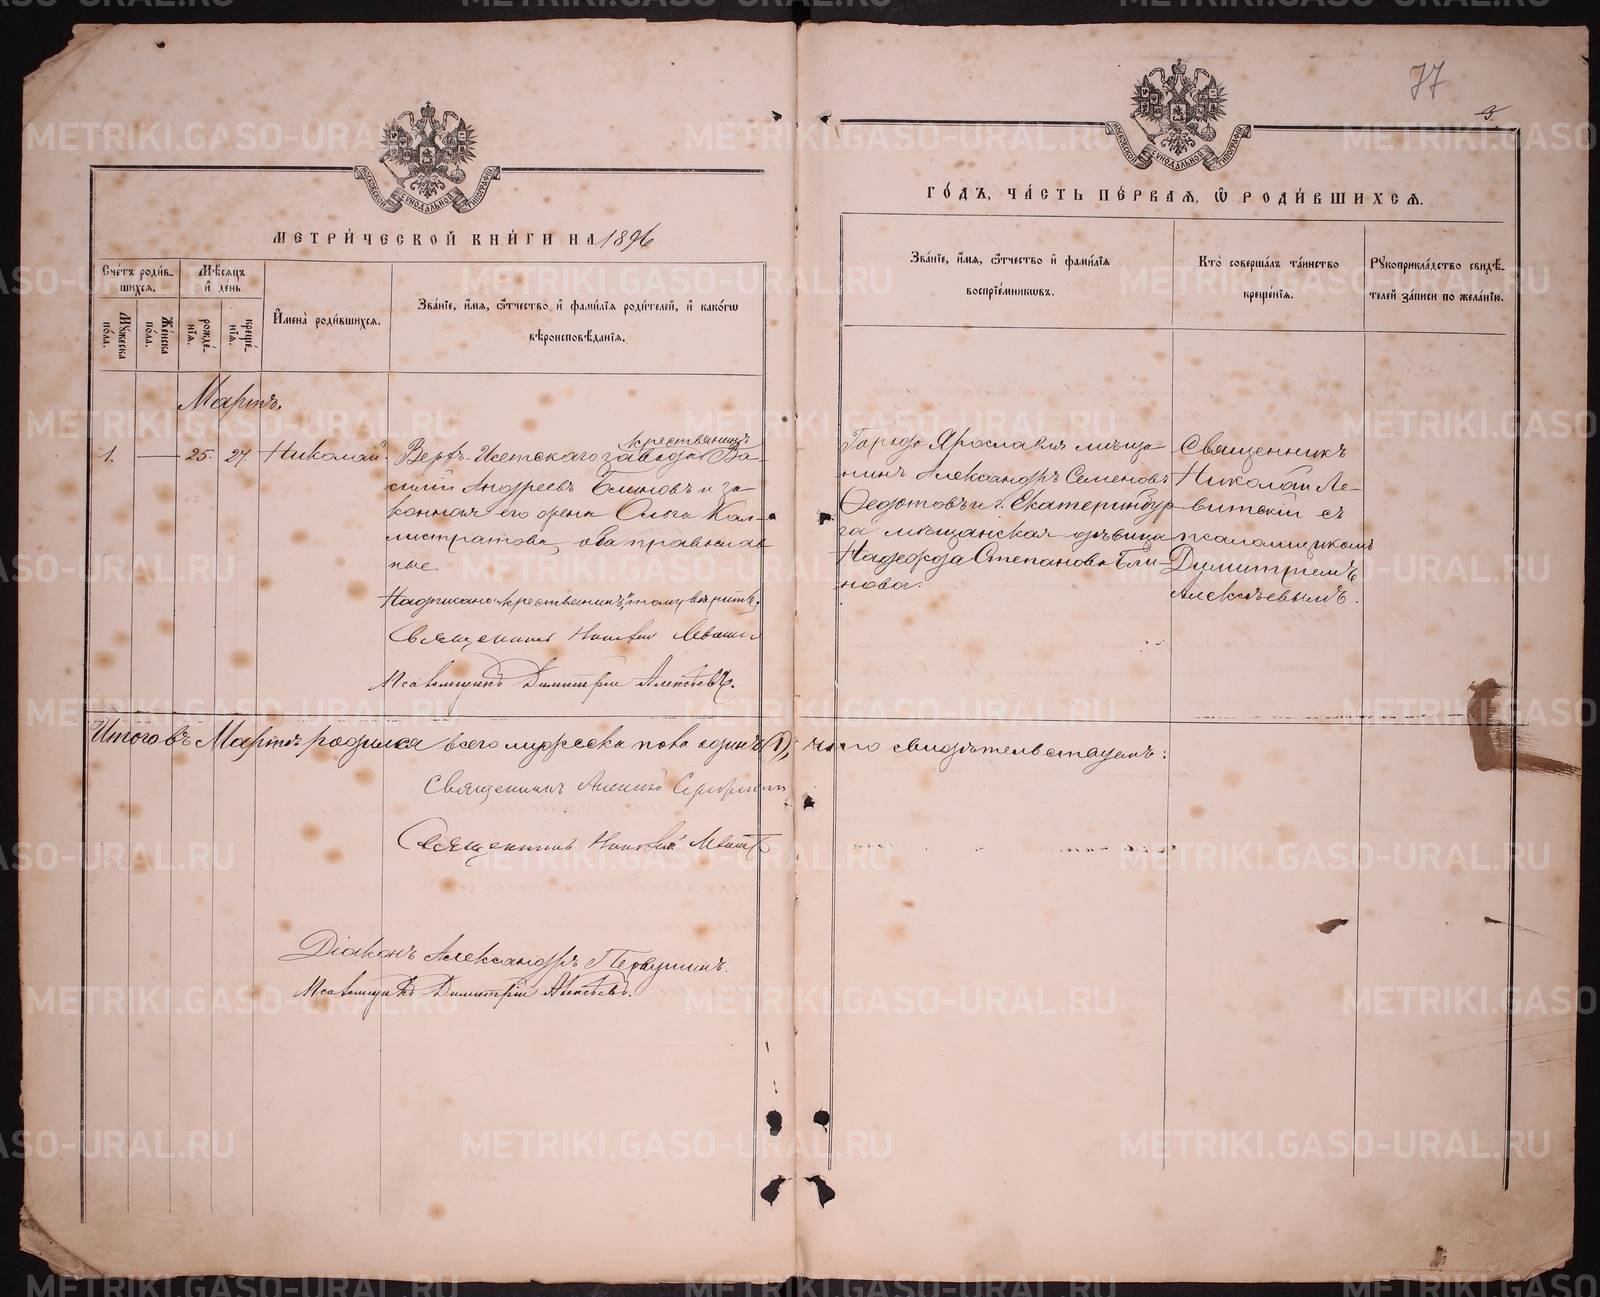 77
3.
МОСКОВСКОЙ СѴНОДАЛЬНОЙ ТИПОГРАФІИ
МОСКОВСКОЙ СѴНОДАЛЬНОЙ ТИПОГРАФІИ
МЕТРИ́ЧЕСКОЙ КНИ́ГИ НА 1896
ГО́ДЪ, ЧА́СТЬ ПЕ́РВАЯ, Ѽ РОДИ́ВШИХСЯ.
Сче́тъ роди́в-
шихся.
Мꙋ́жеска
по́ла.
Же́нска
по́ла.
Мѣ́сяцъ
и де́нь
рожде́-
нія.
креще́-
нія.
И҆мена̀ роди́вшихся.
Зва́ніе, и҆́мя, ѻ҆́тчество и҆ фами́лія роди́телей, и҆ како́гѡ
вѣроисповѣ́данія.
Зва́ніе, и҆́мя, ѻ҆́тчество и҆ фами́лія
воспріе́мниковъ.
Кто̀ соверша́лъ та́инство
креще́нія.
Рꙋкоприкла́дство свидѣ́-
телей за́писи по жела́нію.
Мартъ.
1. — 25. 27. Николай.
крестьянинъ
Верхъ-Исетскаго завода Ва-
силій Андреевъ Блиновъ и за-
конная его жена Ольга Кал-
листратова, оба православ
ные.
Надписано „крестьянинъ" тому вѣрить.
Священникъ Николай Левитскій
Псаломщикъ Димитрій Алексѣевъ.
Города Ярославля мѣща-
нинъ Александръ Семеновъ
Федотовъ и г. Екатеринбур-
га мѣщанская дѣвица
Надежда Степанова Бли-
нова.
Священникъ
Николай Ле-
витскій съ
псаломщикомъ
Димитріемъ
Алексѣевымъ.
Итого въ Мартѣ родился всего мужеска пола одинъ (1), въ чемъ свидѣтельствуемъ:
Священникъ
Священникъ Николай Левитскій
Діаконъ Александръ Первушинъ.
Псаломщикъ Димитрій Алексѣевъ.
METRIKI.GASO-URAL.RU